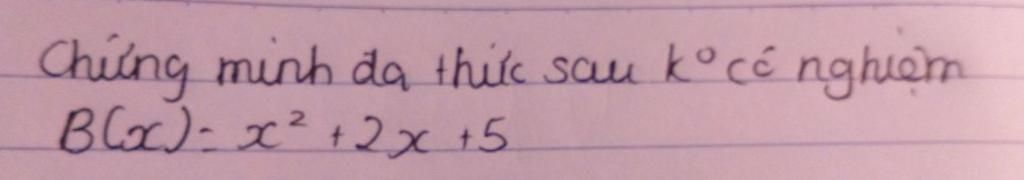 Chứng minh đa thức sau k° có nghiệm
B(x) = x² + 2x + 5